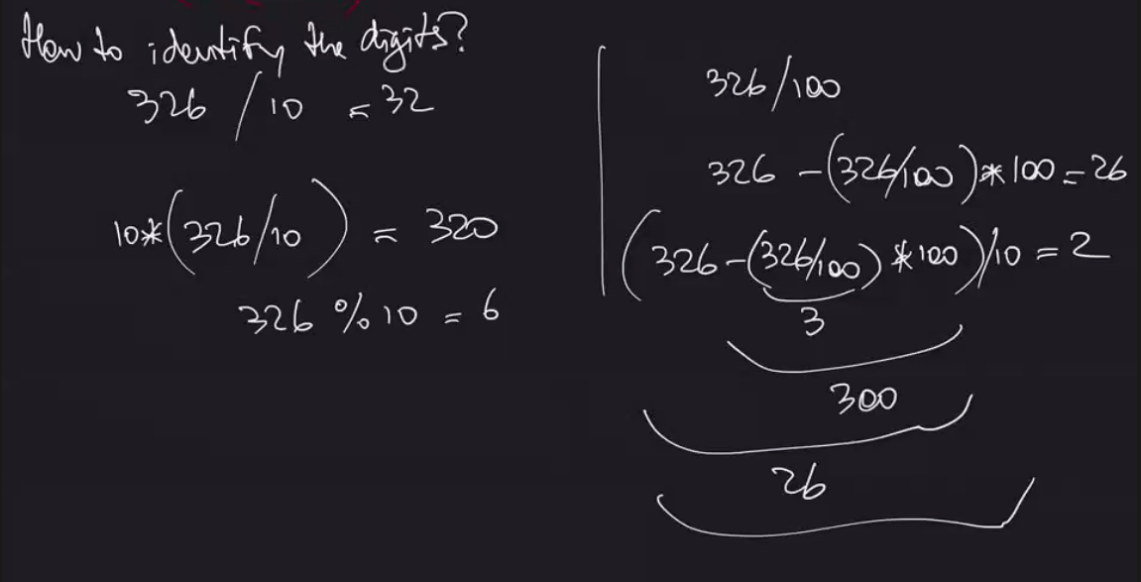 How to identify the digits?
326 / 10 = 32
10*(326/10) = 320
326 % 10 = 6
326/100
326 - (326/100)*100 = 26
(326-(326/100)*100)/10 = 2
3
300
26